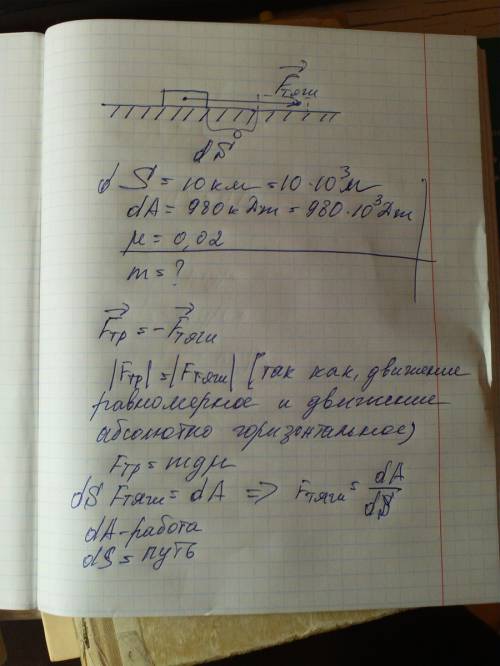 F⃗тяги
dS
dS = 10 км = 10·10³ м
dA = 980 кДж = 980·10³ Дж
μ = 0,02
m = ?
F⃗тр = -F⃗тяги
|Fтр| = |Fтяги| (так как, движение
равномерное и движение
абсолютно горизонтальное)
Fтр = mgμ
dS Fтяги = dA => Fтяги = dA/dS
dA - работа
dS = путь